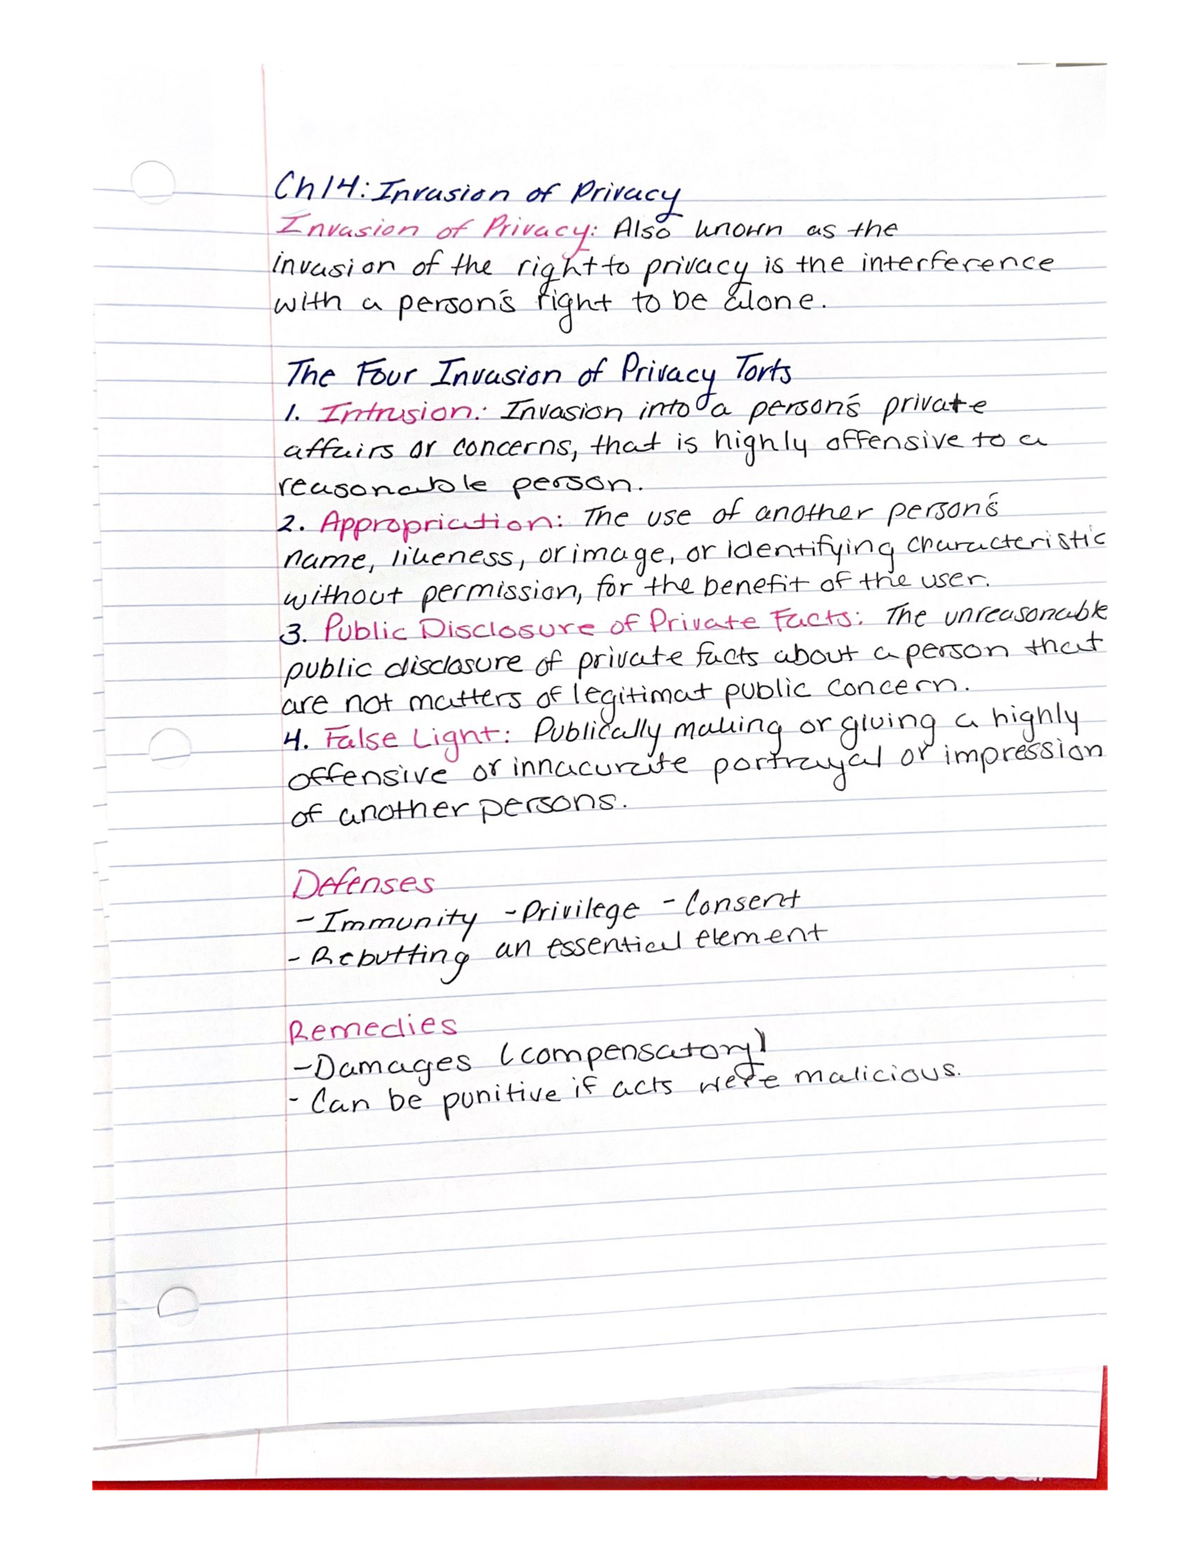 Ch14: Invasion of Privacy
Invasion of Privacy: Also known as the
invasion of the right to privacy is the interference
with a person's right to be alone.
The Four Invasion of Privacy Torts
1. Intrusion: Invasion into a person's private
affairs or concerns, that is highly offensive to a
reasonable person.
2. Appropriation: The use of another person's
name, likeness, or image, or identifying characteristic
without permission, for the benefit of the user.
3. Public Disclosure of Private Facts: The unreasonable
public disclosure of private facts about a person that
are not matters of legitimat public concern.
4. False Light: Publically making or giving a highly
offensive or innacurate portrayal or impression
of another persons.
Defenses
- Immunity - Privilege - Consent
- Rebutting an essential element
Remedies
- Damages (compensatory)
- Can be punitive if acts were malicious.